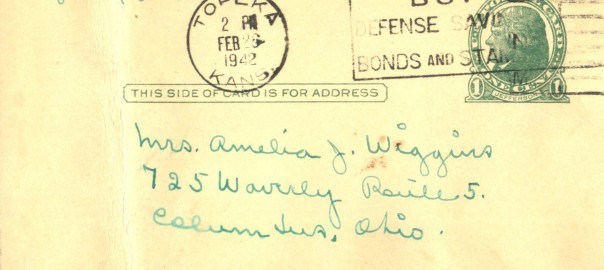 TOPEKA
2 PM
FEB 26
1942
KANS.
BUY
DEFENSE SAVIN
BONDS AND STAM
THIS SIDE OF CARD IS FOR ADDRESS
1 1
JEFFERSON
Mrs. Amelia J. Wiggins
725 Waverly Route 5.
Columbus, Ohio.